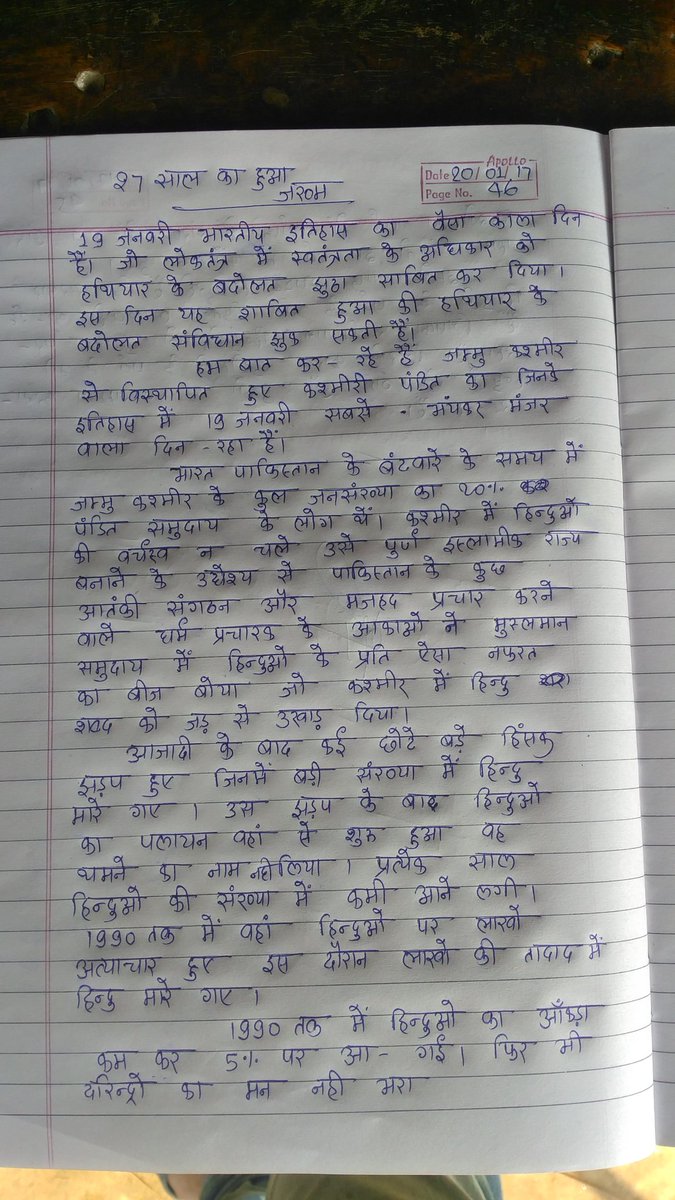 27 साल का हुआ
जख्म
Apollo
Date 20/01/17
Page No. 46
19 जनवरी भारतीय इतिहास का वैसा काला दिन
हैं। जो लोकतंत्र में स्वतंत्रता के अधिकार को
हथियार के बदोलत झुठा साबित कर दिया।
इस दिन यह शाबित हुआ की हथियार के
बदोलत संविधान झुक सकती हैं।
हम बात कर - रहे हैं जम्मु कश्मीर
से विस्थापित हुए कश्मीरी पंडित का जिनके
इतिहास में 19 जनवरी सबसे - भंयकर मंजर
वाला दिन - रहा हैं।
भारत पाकिस्तान के बंटवारे के समय में
जम्मु कश्मीर के कुल जनसंख्या का 20%
पंडित समुदाय के लोग थें। कश्मीर में हिन्दुओं
की वर्चस्व न चले उसे पुर्ण इस्लामीक राज्य
बनाने के उद्येश्य से पाकिस्तान के कुछ
आतंकी संगठन और मजहद प्रचार करने
वाले धर्म प्रचारक के आकाओं ने मुस्लमान
समुदाय में हिन्दुओ के प्रति ऐसा नफरत
का बीज बोया जो कश्मीर में हिन्दु
शब्द को जड़ से उखाड़ दिया।
आजादी के बाद कई छोटे बड़े हिंसक
झड़प हुए जिनमें बड़ी संख्या में हिन्दु
मारे गए। उस झड़प के बाद हिन्दुओ
का पलायन वहां से शुरू हुआ वह
थमने का नाम नही लिया। प्रत्येक साल
हिन्दुओ की संख्या में कमी आने लगी।
1990 तक में वहां हिन्दुओ पर लाखो
अत्याचार हुए इस दौरान लाखो की तादाद में
हिन्दु मारे गए।
1990 तक में हिन्दुओ का आँकड़ा
कम कर 5% पर आ - गई। फिर भी
दरिन्द्रो का मन नही भरा